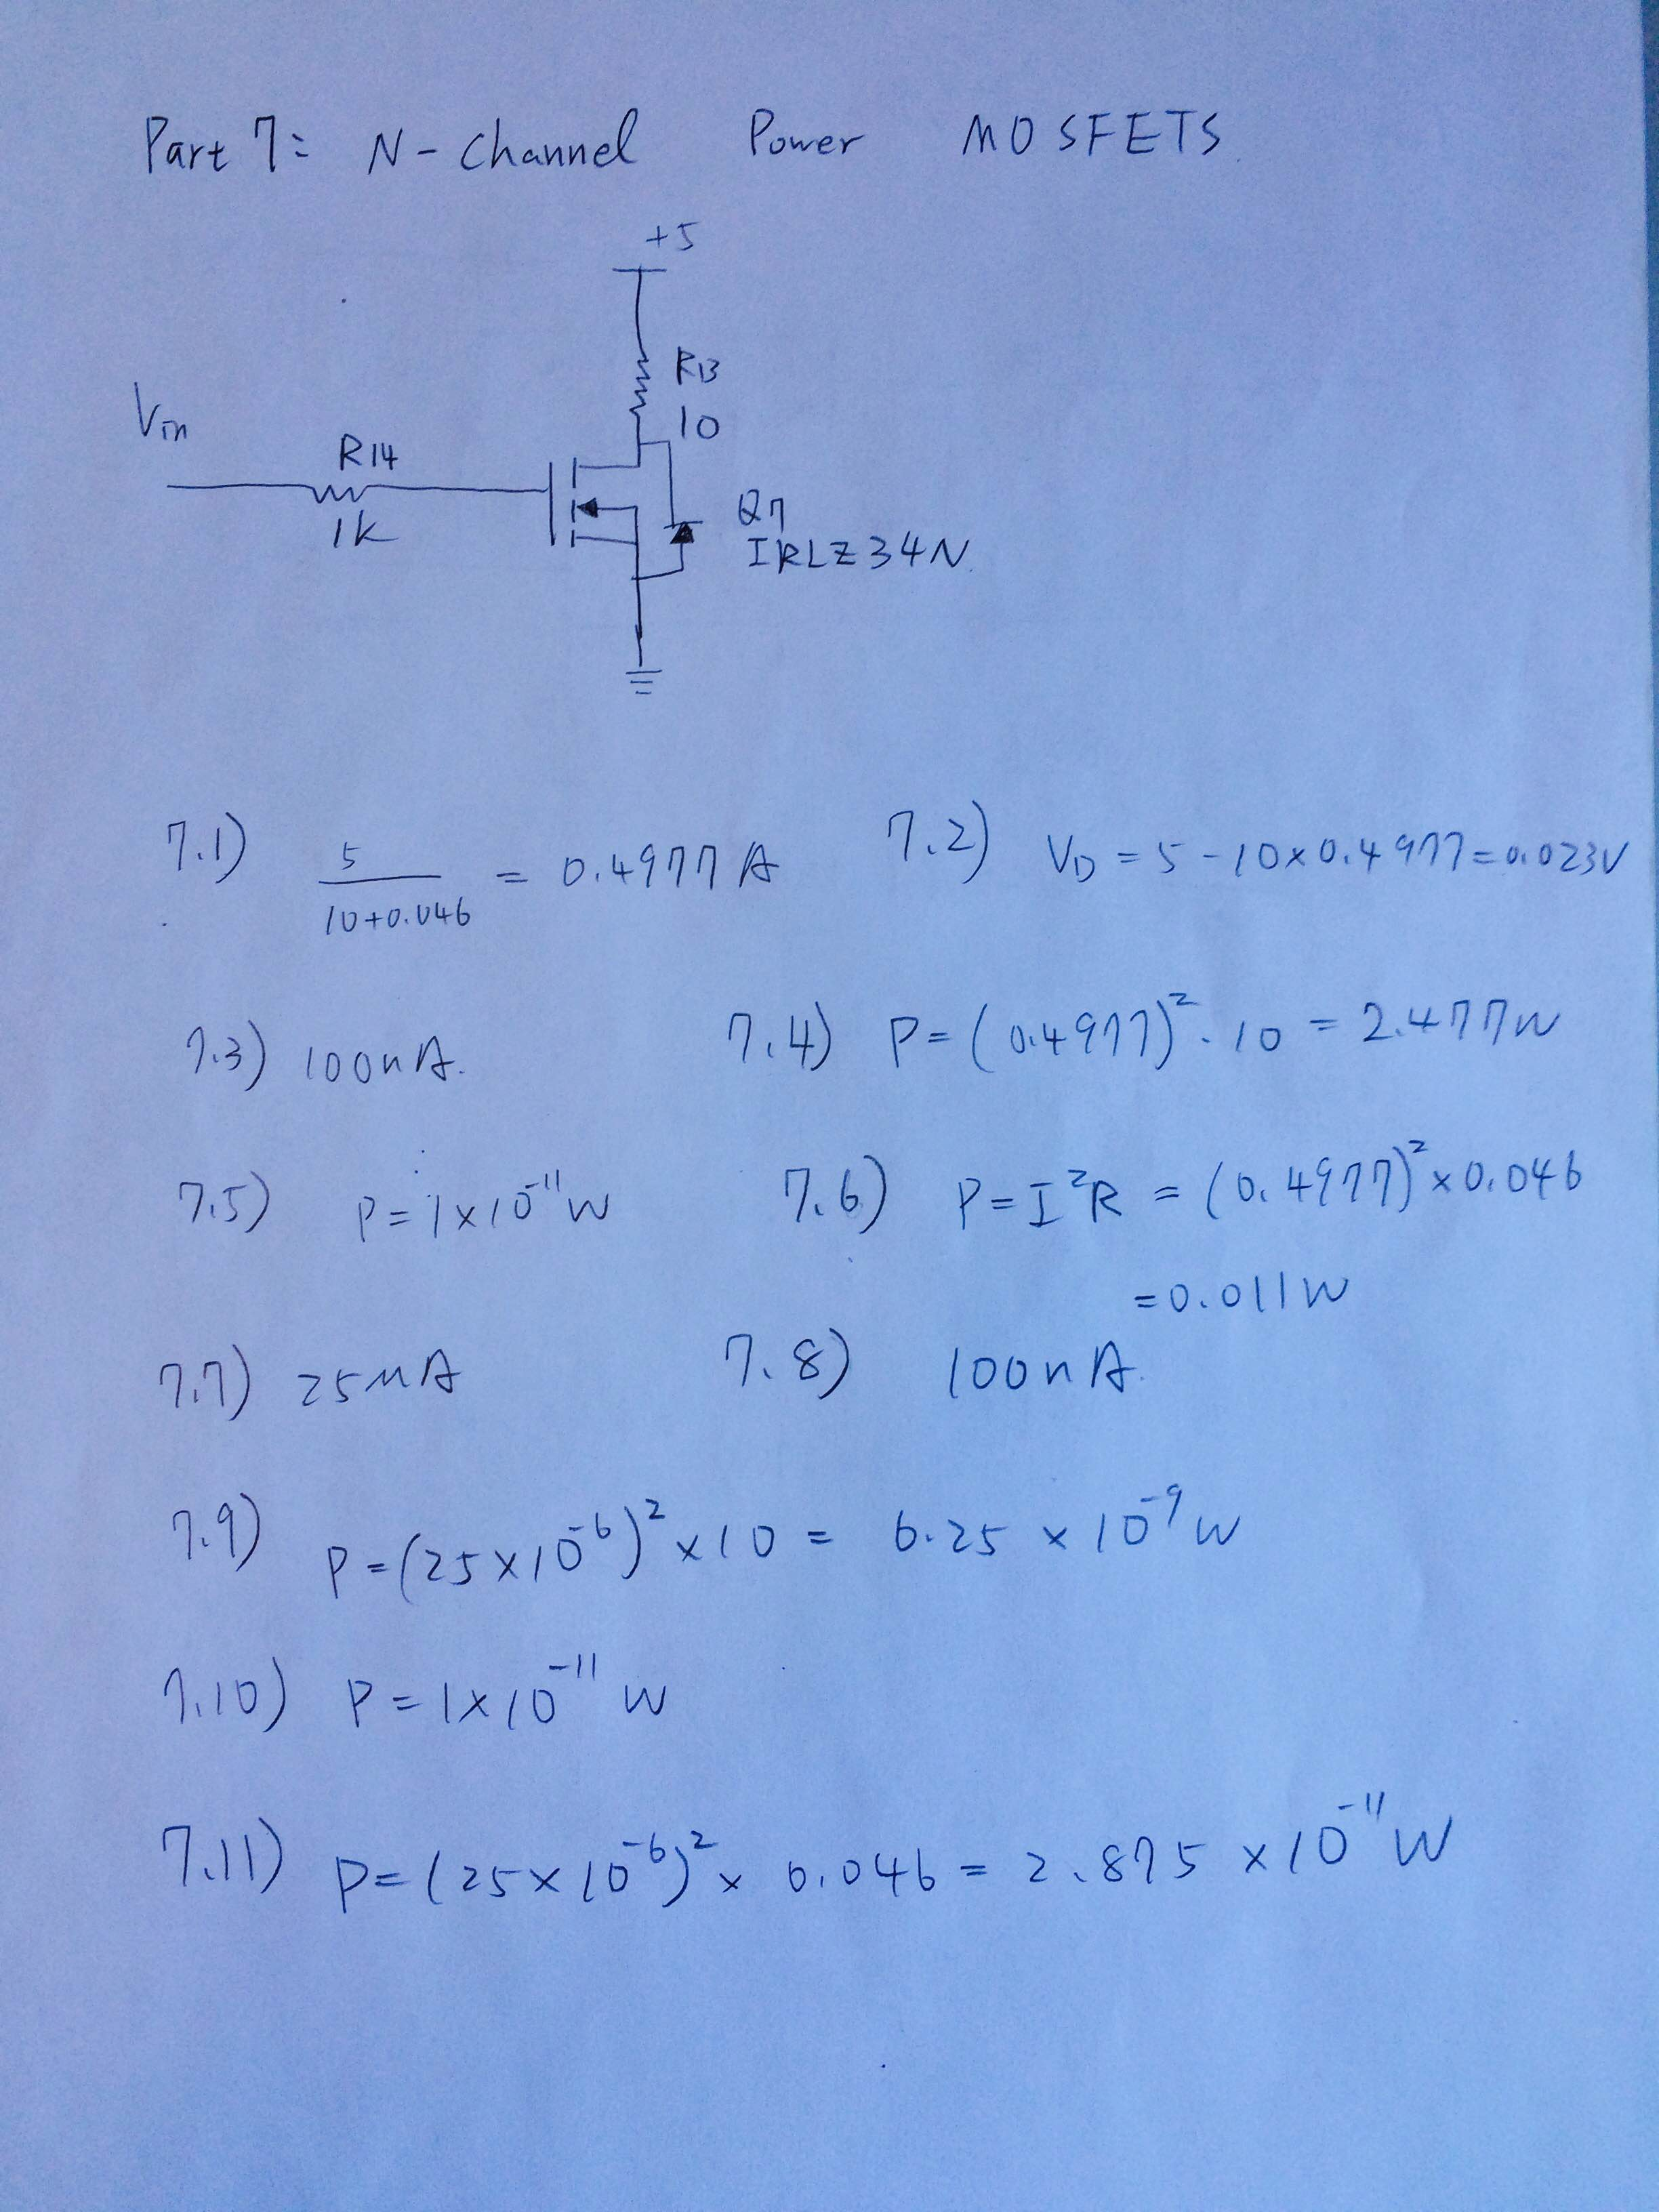 Part 7: N-Channel Power MOSFETS.
+5
R13
10
Vin
R14
1K
Q7
IRLZ34N.
7.1) 5/(10+0.046) = 0.4977A
7.2) VD = 5-10×0.4977=0.023V
7.3) 100nA.
7.4) P=(0.4977)²·10 = 2.477W
7.5) P=1×10⁻¹¹W
7.6) P=I²R = (0.4977)²×0.046
=0.011W
7.7) 25μA
7.8) 100nA.
7.9) P=(25×10⁻⁶)²×10 = 6.25 ×10⁻⁹W
7.10) P=1×10⁻¹¹W
7.11) P=(25×10⁻⁶)²× 0.046 = 2.875 ×10⁻¹¹W